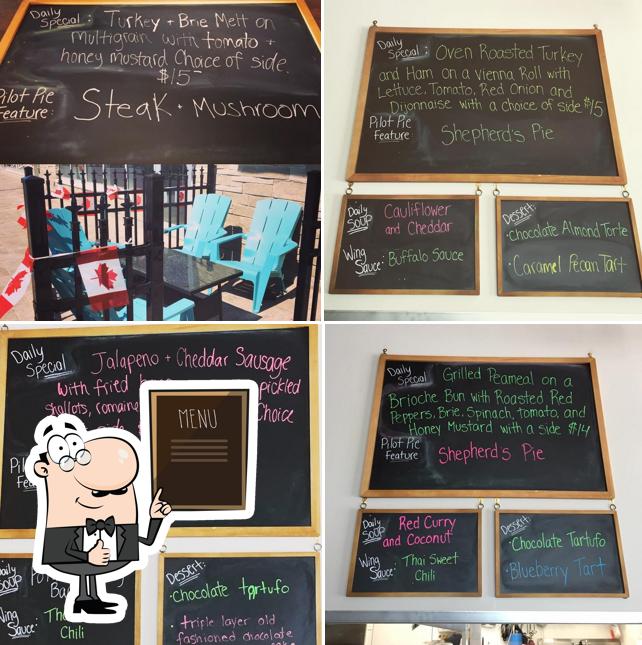 Daily
Special: Turkey + Brie Melt on
multigrain with tomato +
honey mustard Choice of side.
$15
Pilot Pie
Feature: Steak + Mushroom
Daily
Special: Oven Roasted Turkey
and Ham on a Vienna Roll with
Lettuce, Tomato, Red Onion and
Dijonnaise with a choice of side $15
Pilot Pie
Feature: Shepherd's Pie
Daily
Soup: Cauliflower
and Cheddar
Wing
Sauce: Buffalo Sauce
Dessert:
·Chocolate Almond Torte
·Caramel Pecan Tart
Daily
Special Jalapeno + Cheddar Sausage
with fried pickled
shallots, romaine
Choice
MENU
Soup
Wing
Sauce:
Chili
Dessert:
·chocolate tartufo
·triple layer old
fashioned chocolate
Daily
Special Grilled Peameal on a
Brioche Bun with Roasted Red
Peppers, Brie, Spinach, tomato, and
Honey Mustard with a side $14
Pilot Pie
Feature Shepherd's Pie
Daily
Soup Red Curry
and Coconut
Wing
Sauce: Thai Sweet
Chili
Dessert:
·Chocolate Tartufo
·Blueberry Tart